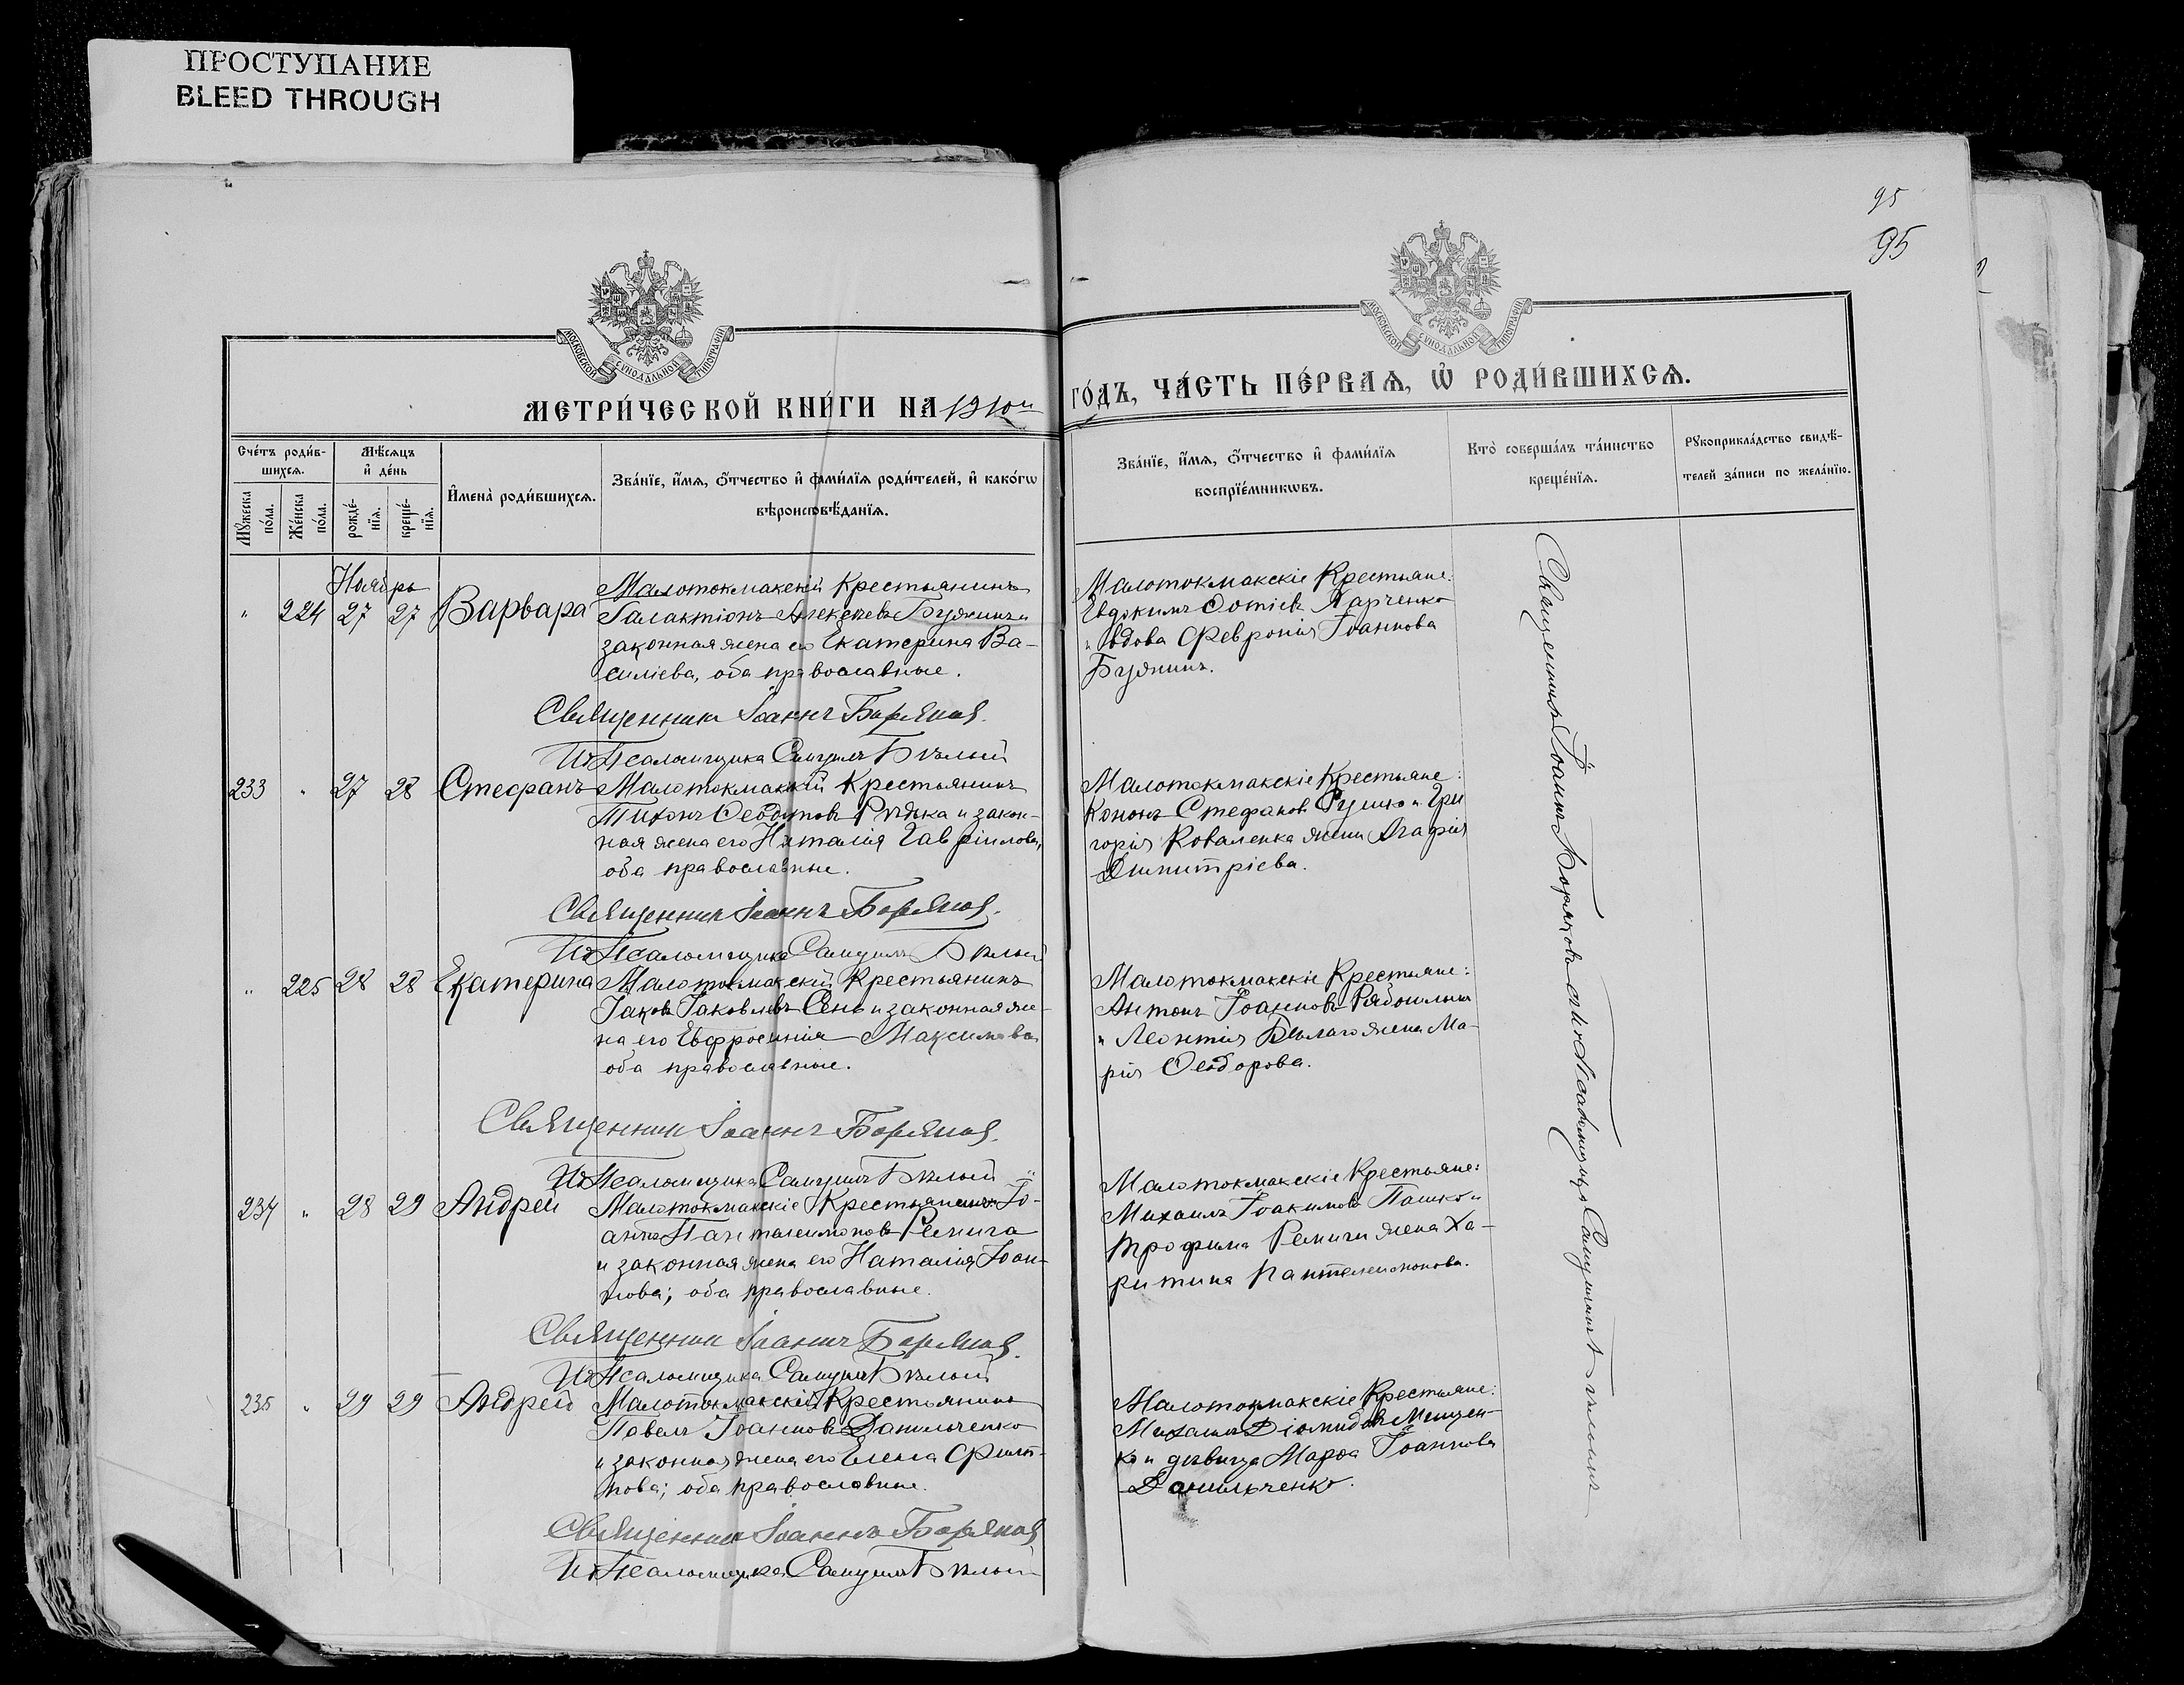 ПРОСТУПАНИЕ
BLEED THROUGH
95
95
МОСКОВСКОЙ СУНОДАЛЬНОЙ ТИПОГРАФІИ
МОСКОВСКОЙ СУНОДАЛЬНОЙ ТИПОГРАФІИ
МЕТРИ́ЧЕСКОЙ КНИ́ГИ НА 1910й
ГО́ДЪ, ЧА́СТЬ ПЕ́РВАѦ, Ѡ҆ РОДИ́ВШИХСѦ.
Сче́тъ роди́в-
шихсѧ.
Мѣ́сѧцъ
и҆ де́нь
Мꙋ́жеска
по́ла.
Же́нска
по́ла.
рожде́-
нїѧ.
креще́-
нїѧ.
И҆мена̀ роди́вшихсѧ.
Зва́нїе, и҆́мѧ, ѻ҆́тчество и҆ фами́лїѧ роди́телей, и҆ како́гѡ
вѣроисповѣ́данїѧ.
Зва́нїе, и҆́мѧ, ѻ҆́тчество и҆ фами́лїѧ
воспрїе́мникѡвъ.
Кто̀ соверша́лъ та́инство
креще́нїѧ.
Рꙋкоприкла́дство свидѣ́-
телей за́писи по жела́нїю.
Ноябрь
" 224 27 27 Варвара
Малотокмакскій Крестьянинъ
Галактіонъ Алексѣевъ Бужинъ и
законная жена его Екатерина Ва-
силіева, оба православные.
Священникъ Іоаннъ Боряков.
И. д. Псаломщика Самуилъ Бѣлый
Малотокмакскіе Крестьяне:
Евдокимъ Фотіевъ Харченко
и вдова Февронія Іоаннова
Бужинъ.
233 " 27 28 Стефанъ
Малотокмакскій Крестьянинъ
Тихонъ Ѳеодотовъ Рѣдька и закон-
ная жена его Наталія Гавріилова,
оба православные.
Священникъ Іоаннъ Боряков.
И. д. Псаломщика Самуилъ Бѣлый
Малотокмакскіе Крестьяне:
Кононъ Стефановъ и Гри
горія Коваленка жена Агафія
Димитріева.
" 225 28 28 Екатерина
Малотокмакскій Крестьянинъ
Іаковъ Іаковлевъ Сень и законная же-
на его Евфросинія Максимова
оба православные.
Священникъ Іоаннъ Боряков.
И. д. Псаломщика Самуилъ Бѣлый
Малотокмакскіе Крестьяне:
Антонъ Іоанновъ
и Леонтія Бѣлаго жена Ма-
рія Ѳеодорова.
234 " 28 29 Андрей
Малотокмакскіе Крестьянинъ Іо-
аннъ Пантелеимоновъ Ремига
и законная жена его Наталія Іоан-
нова; оба православные.
Священникъ Іоаннъ Боряков.
И. д. Псаломщика Самуилъ Бѣлый
Малотокмакскіе Крестьяне:
Михаилъ Іоакимовъ Пашко и
Трофима Ремиги жена Ха-
ритина Пантелеимонова.
235 " 29 29 Андрей
Малотокмакскій Крестьянинъ
Павелъ Іоанновъ Данильченко
и законная жена его Елена Филип-
пова; оба православные.
Священникъ Іоаннъ Боряков
И. д. Псаломщика Самуилъ Бѣлый
Малотокмакскіе Крестьяне:
Михаилъ Діомидовъ Мищен-
ко и дѣвица Марѳа Іоаннова
Данильченко.
Священникъ Іоаннъ Боряковъ съ и. д. Псаломщика Самуиломъ Бѣлымъ